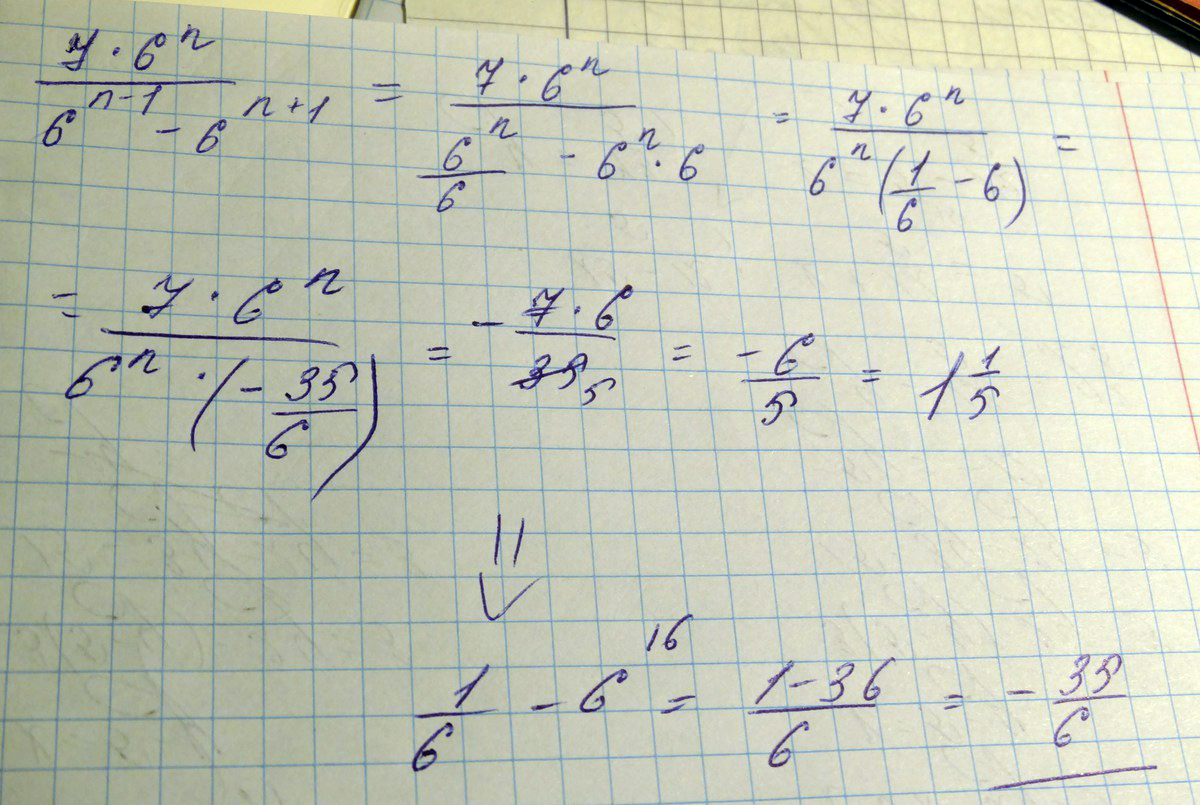 \frac{7 \cdot 6^n}{6^{n-1} - 6^{n+1}} = \frac{7 \cdot 6^n}{\frac{6^n}{6} - 6^n \cdot 6} = \frac{7 \cdot 6^n}{6^n (\frac{1}{6} - 6)} =
= \frac{7 \cdot 6^n}{6^n \cdot (-\frac{35}{6})} = -\frac{7 \cdot 6}{35_5} = \frac{-6}{5} = 1\frac{1}{5}
\frac{1}{6} - 6^{16} = \frac{1-36}{6} = -\frac{35}{6}